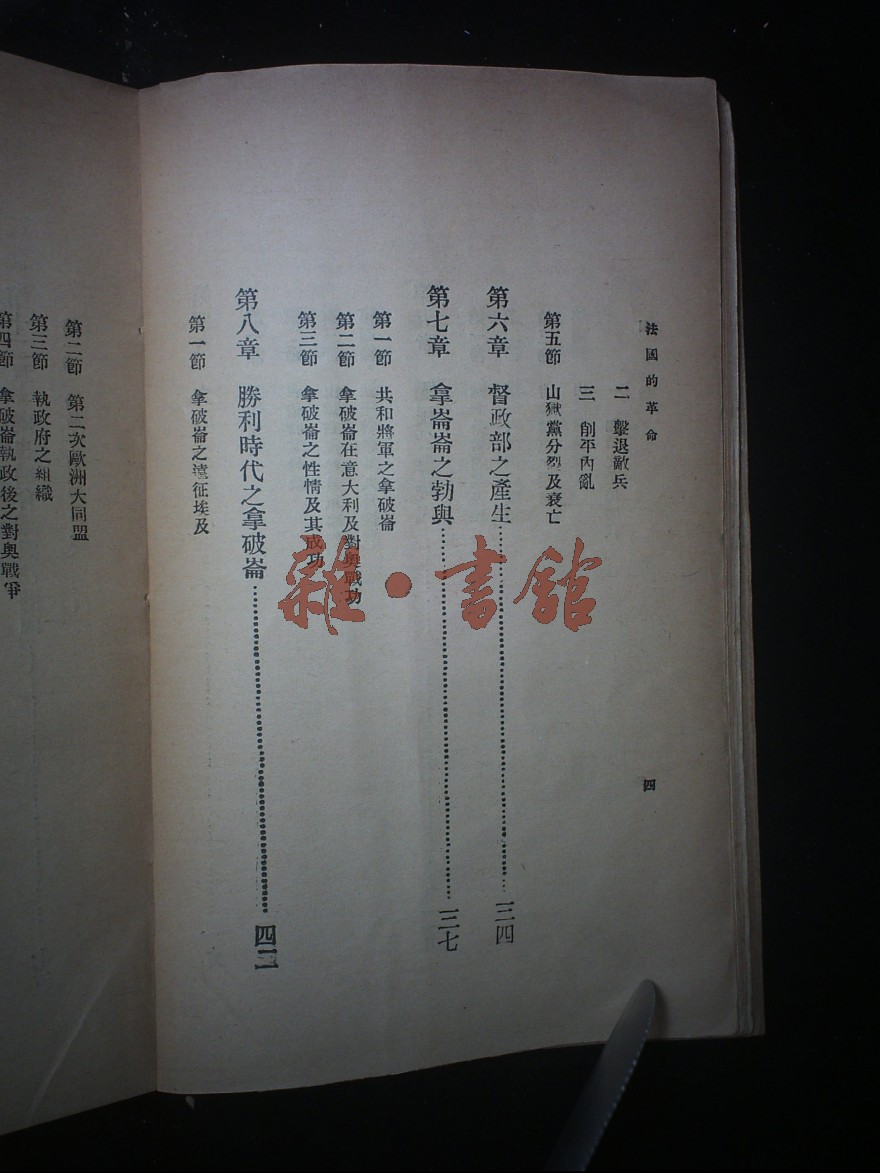 法國的革命
四
二 擊退敵兵
三 削平內亂
第五節 山獄黨分裂及衰亡
第六章 督政部之產生……三四
第七章 拿崙崙之勃興……三七
第一節 共和將軍之拿破崙
第二節 拿破崙在意大利及對奧戰功
第三節 拿破崙之性情及其成功
第八章 勝利時代之拿破崙……四三
第一節 拿破崙之遠征埃及
第二節 第二次歐洲大同盟
第三節 執政府之組織
第四節 拿破崙執政後之對奧戰爭
雜·書館